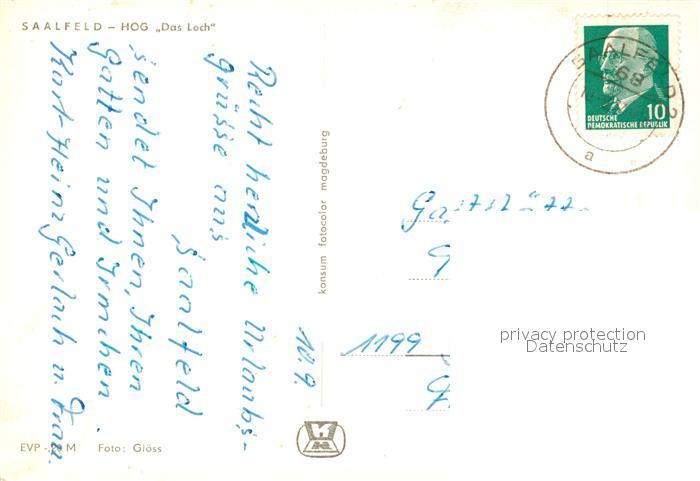 SAALFELD – HOG „Das Loch“
Recht herzliche Urlaubs-
grüsse aus
Saalfeld
sendet Ihnen, Ihren
Gatten und Irmchen.
Kurt-Heinz Gerlach u. Frau.
10.9.
konsum fotocolor magdeburg
EVP - M Foto: Glöss
SAALFELD
68
a
10
DEUTSCHE
DEMOKRATISCHE REPUBLIK
Gaststätte
1199
privacy protection
Datenschutz